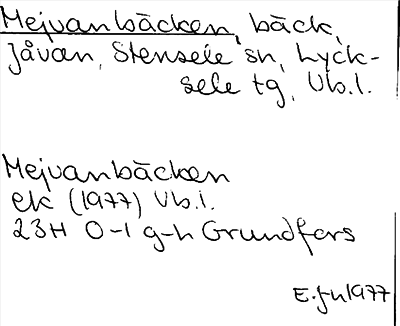 Mejvanbäcken, bäck,
Jåvan, Stensele sn, Lyck-
sele tg, Vb.l.
Mejvanbäcken
ek (1977) Vb.l.
23H 0-1 g-h Grundfors
1977